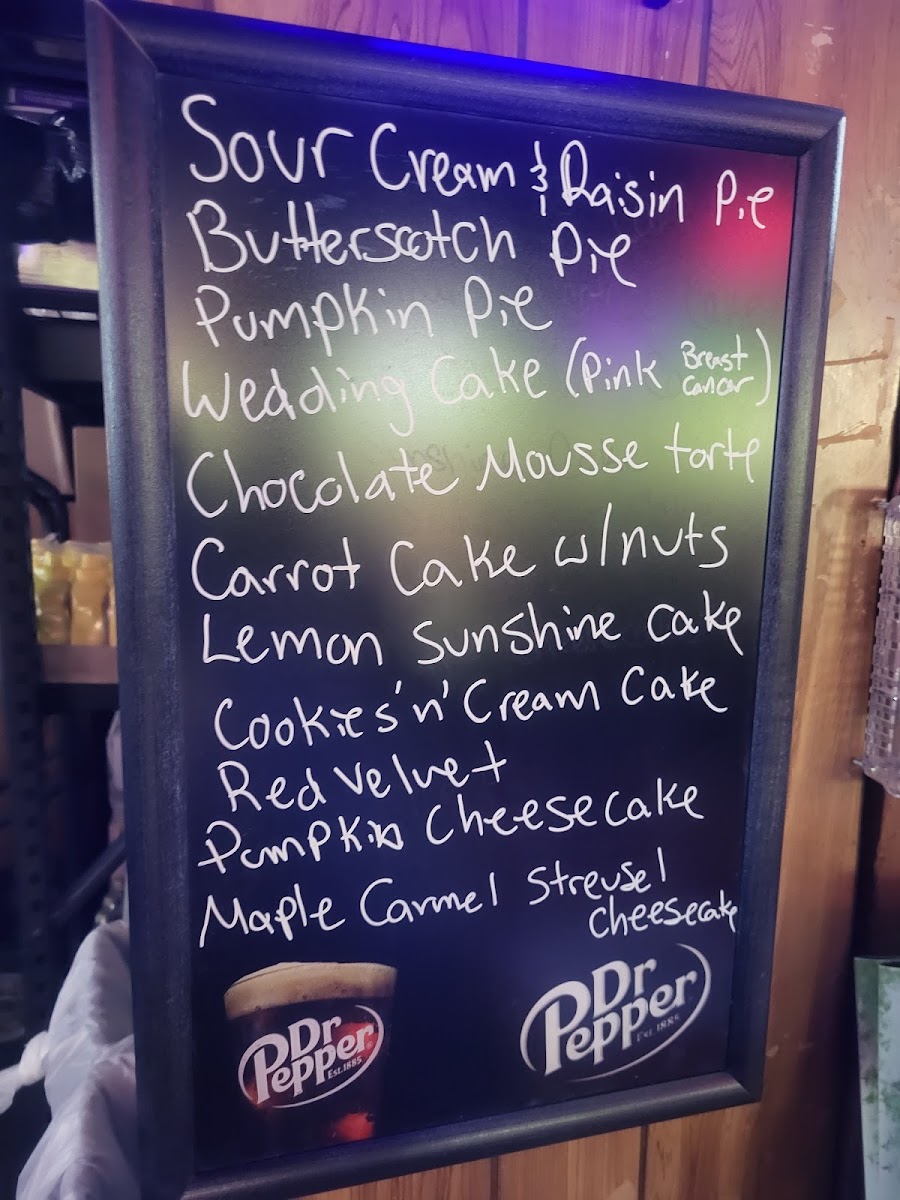 Sour Cream & Raisin Pie
Butterscotch Pie
Pumpkin Pie
Wedding Cake (Pink Breast cancer)
Chocolate Mousse torte
Carrot Cake w/nuts
Lemon Sunshine Cake
Cookies 'n' Cream Cake
Red Velvet
Pumpkin Cheesecake
Maple Carmel Streusel
Cheesecake
Dr Pepper
EST. 1885
Dr Pepper
EST. 1885